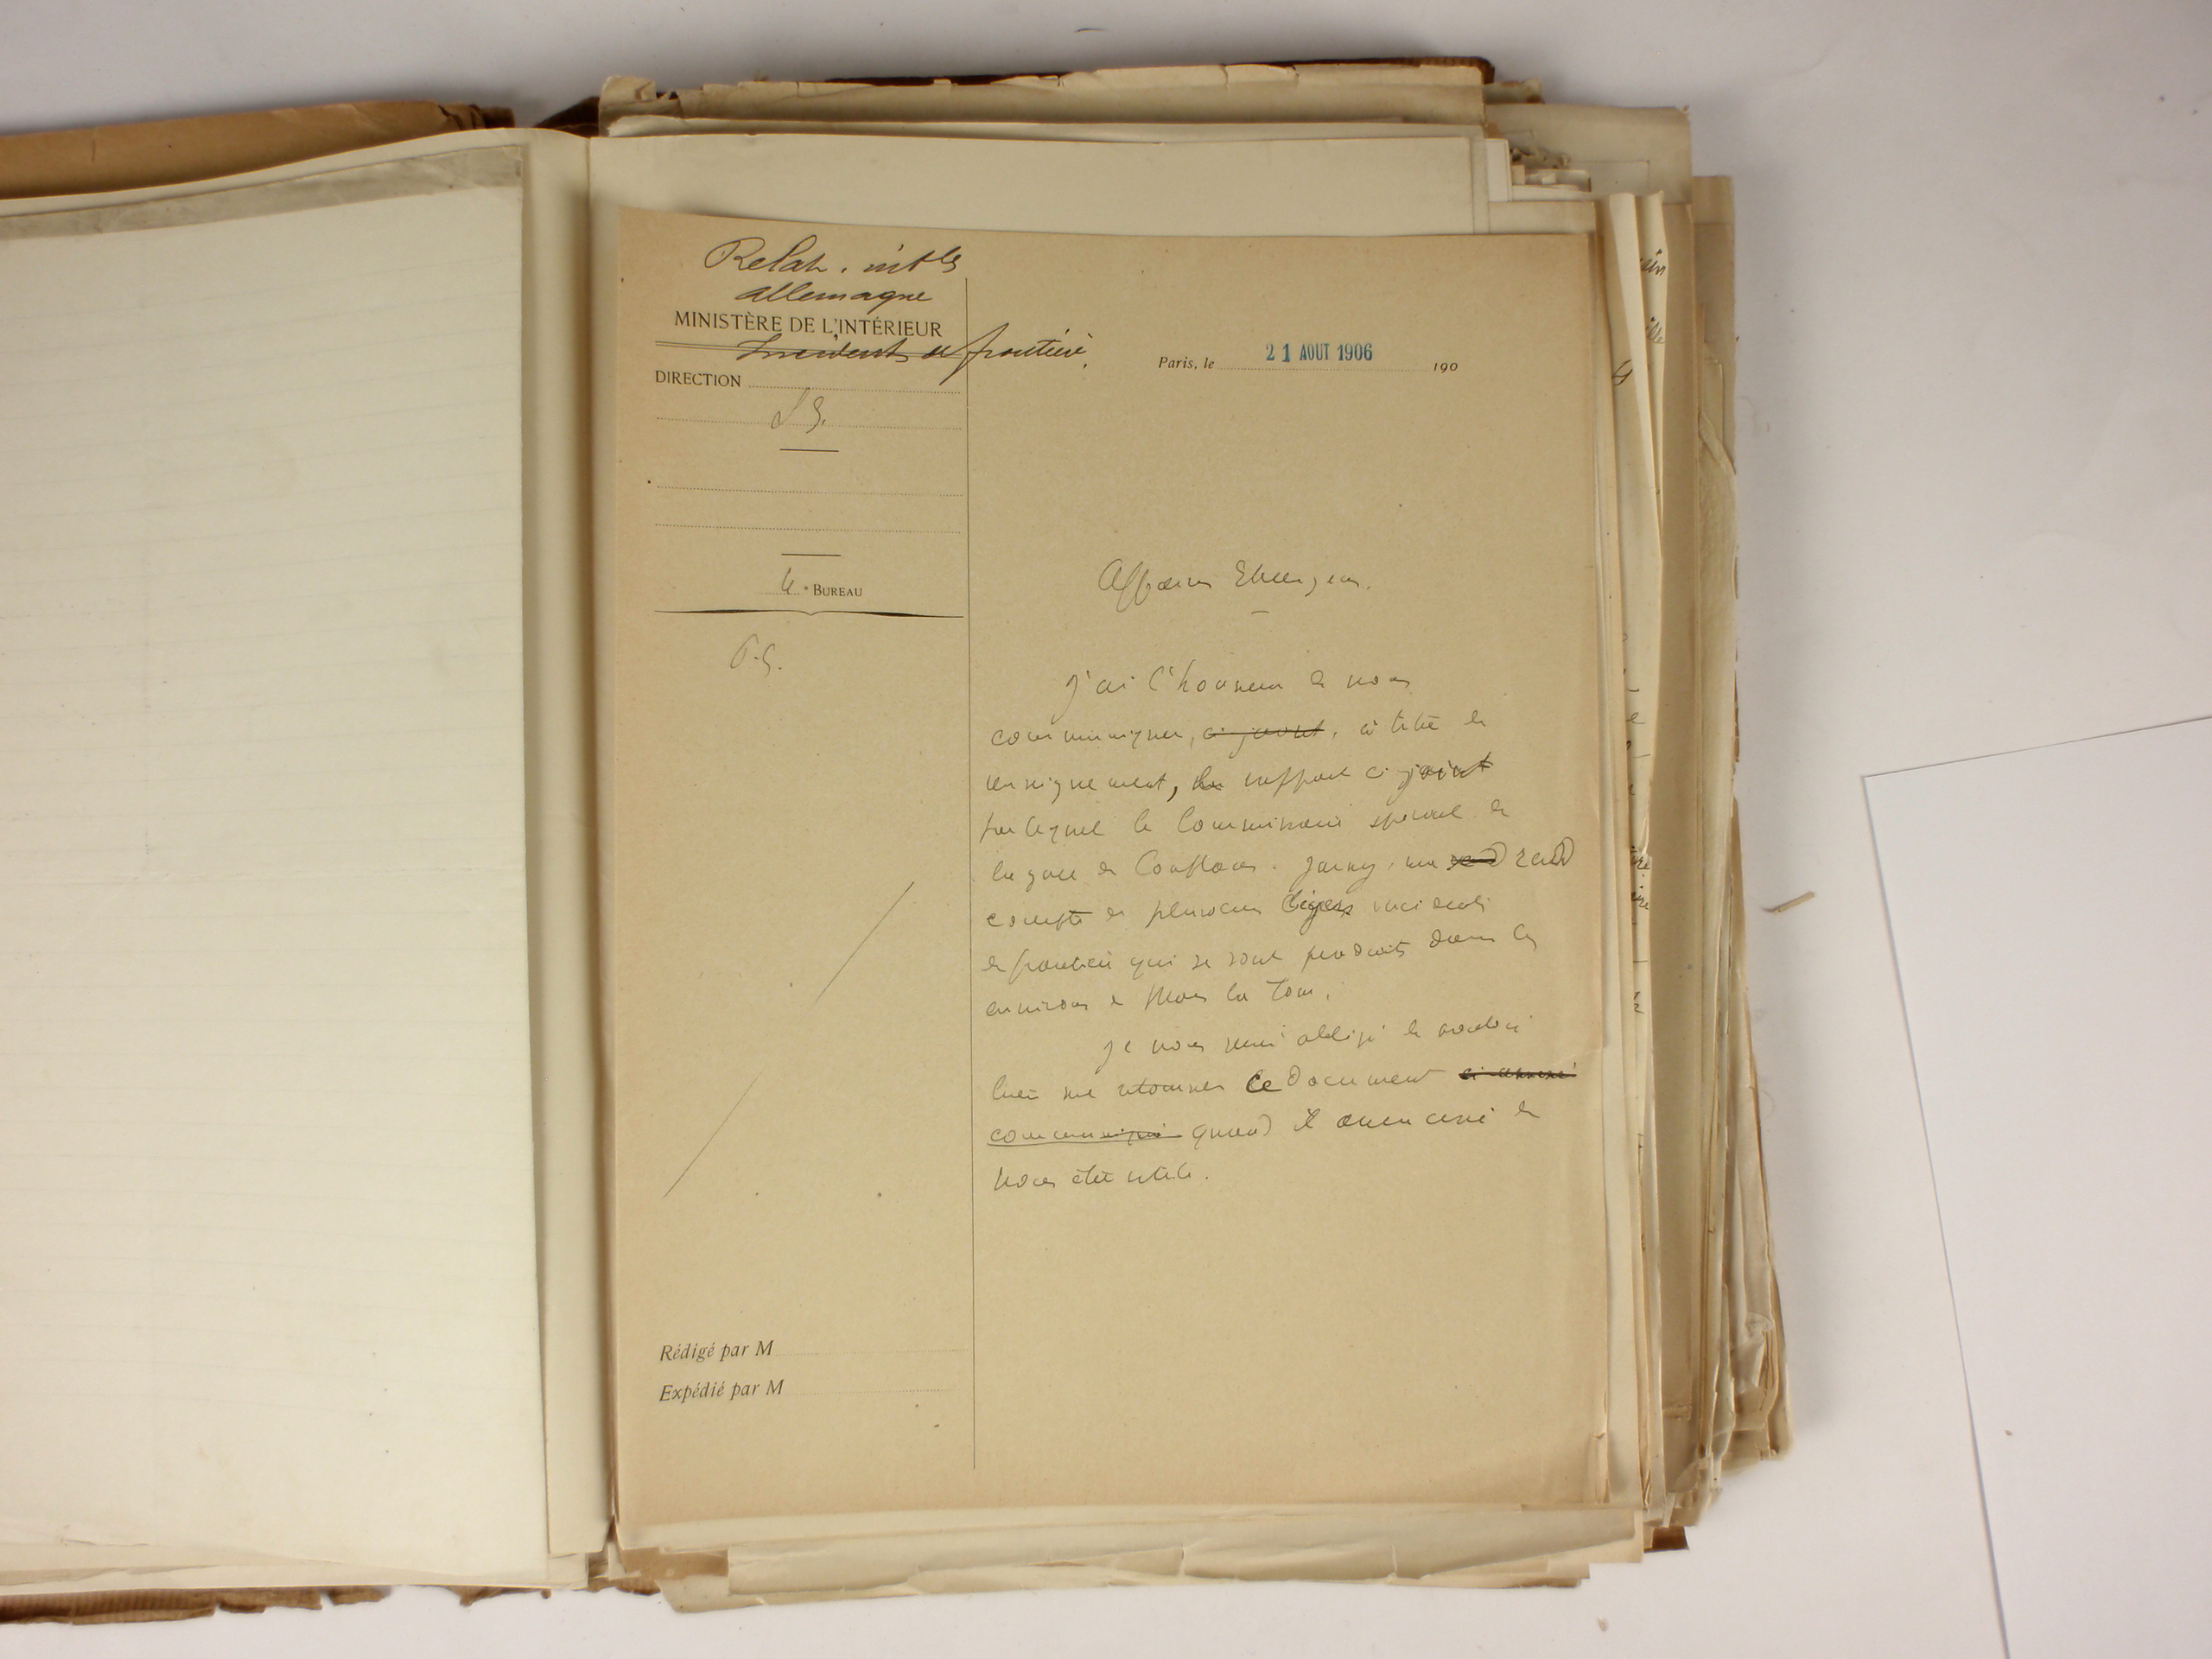 Relat. intles
Allemagne
MINISTÈRE DE L'INTÉRIEUR
Incidents de frontière.
DIRECTION
SG.
4e BUREAU
P.G.
Paris, le 21 AOUT 1906 190
Affaires Etrangères.
J'ai l'honneur de vous
communiquer, ci-joint, à titre de
renseignement, le rapport ci-joint
par lequel le Commissaire spécial de
la gare de Conflans-Jarny, me rend
compte de plusieurs légers incidents
de frontière qui se sont produits dans les
environs de Mars la Tour.
Je vous serai obligé de vouloir
bien me retourner ce document ci-annexé
communiqué quand il aura cessé de
vous être utile.
Rédigé par M
Expédié par M